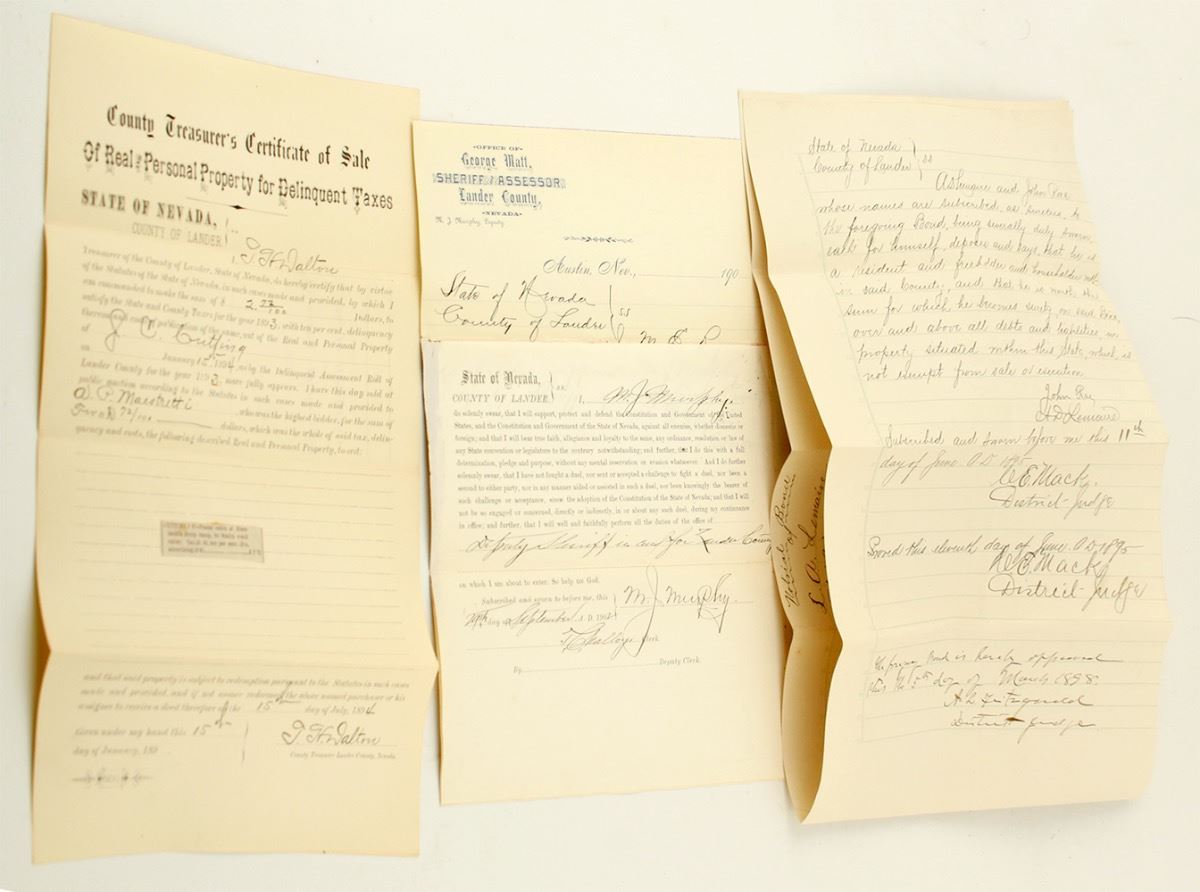 County Treasurer's Certificate of Sale
Of Real & Personal Property for Delinquent Taxes
STATE OF NEVADA,
COUNTY OF LANDER. } ss.
I, T. H. Dalton
Treasurer of the County of Lander, State of Nevada, do hereby certify that by virtue
of the Statutes of the State of Nevada, in such cases made and provided, by which I
am commanded to make the sum of $ 2.72/100 Dollars, to
satisfy the State and County Taxes for the year 1893, with ten per cent. delinquency
thereon and costs of of the same, out of the Real and Personal Property
of J. C. Cutting
on January 15th, 1894, as by the Delinquent Assessment Roll of
Lander County for the year 1893, more fully appears. I have this day sold at
public auction according to the Statutes in such cases made and provided to
A. P. Maestretti, who was the highest bidder, for the sum of
Two & 72/100 dollars, which was the whole of said tax, delin-
quency and costs, the following described Real and Personal Property, to-wit:
and that said property is subject to redemption pursuant to the Statutes in such cases
made and provided, and if not sooner redeemed the above named purchaser or his
assigns to receive a deed therefor on the 15th day of July, 1894
Given under my hand this 15th
day of January, 189
T. H. Dalton
County Treasurer Lander County, Nevada.
OFFICE OF
George Watt,
SHERIFF & ASSESSOR
Lander County,
NEVADA
M. J. Murphy, Deputy
Austin, Nev., 190
State of Nevada
County of Lander } ss
State of Nevada,
COUNTY OF LANDER. } ss. I, M. J. Murphy
do solemnly swear, that I will support, protect and defend the Constitution and Government of the United
States, and the Constitution and Government of the State of Nevada, against all enemies, whether domestic or
foreign; and that I will bear true faith, allegiance and loyalty to the same, any ordinance, resolution or law of
any State convention or legislature to the contrary notwithstanding; and further, that I do this with a full
determination, pledge and purpose, without any mental reservation or evasion whatsoever. And I do further
solemnly swear, that I have not fought a duel, nor sent or accepted a challenge to fight a duel, nor been a
second to either party, nor in any manner aided or assisted in such a duel, nor been knowingly the bearer of
such challenge or acceptance, since the adoption of the Constitution of the State of Nevada; and that I will
not be so engaged or concerned, directly or indirectly, in or about any such duel, during my continuance
in office; and further, that I will well and faithfully perform all the duties of the office of
Deputy Sheriff in and for Lander County
on which I am about to enter. So help me God.
Subscribed and sworn to before me, this
day of September A. D. 190
M. J. Murphy
Clerk
By Deputy Clerk.
State of Nevada
County of Lander } ss
A D Lemaire and John Rae
whose names are subscribed, as sureties, to
the foregoing Bond, being severally duly sworn,
each for himself, deposes and says, that he is
a resident and freeholder and householder
in said County, and that he is worth the
sum for which he becomes surety on said Bond
over and above all debts and liabilities, in
property situated within this State, which is
not exempt from sale or execution.
John Rae
A D Lemaire
Subscribed and sworn before me this 11th
day of June A D 1895
A E Mack,
District Judge
Approved this eleventh day of June A D 1895
A E Mack,
District Judge
Bond
of
L. A. Lemaire
The foregoing Bond is hereby approved
this the day of March 1898.
A L Fitzgerald
District Judge